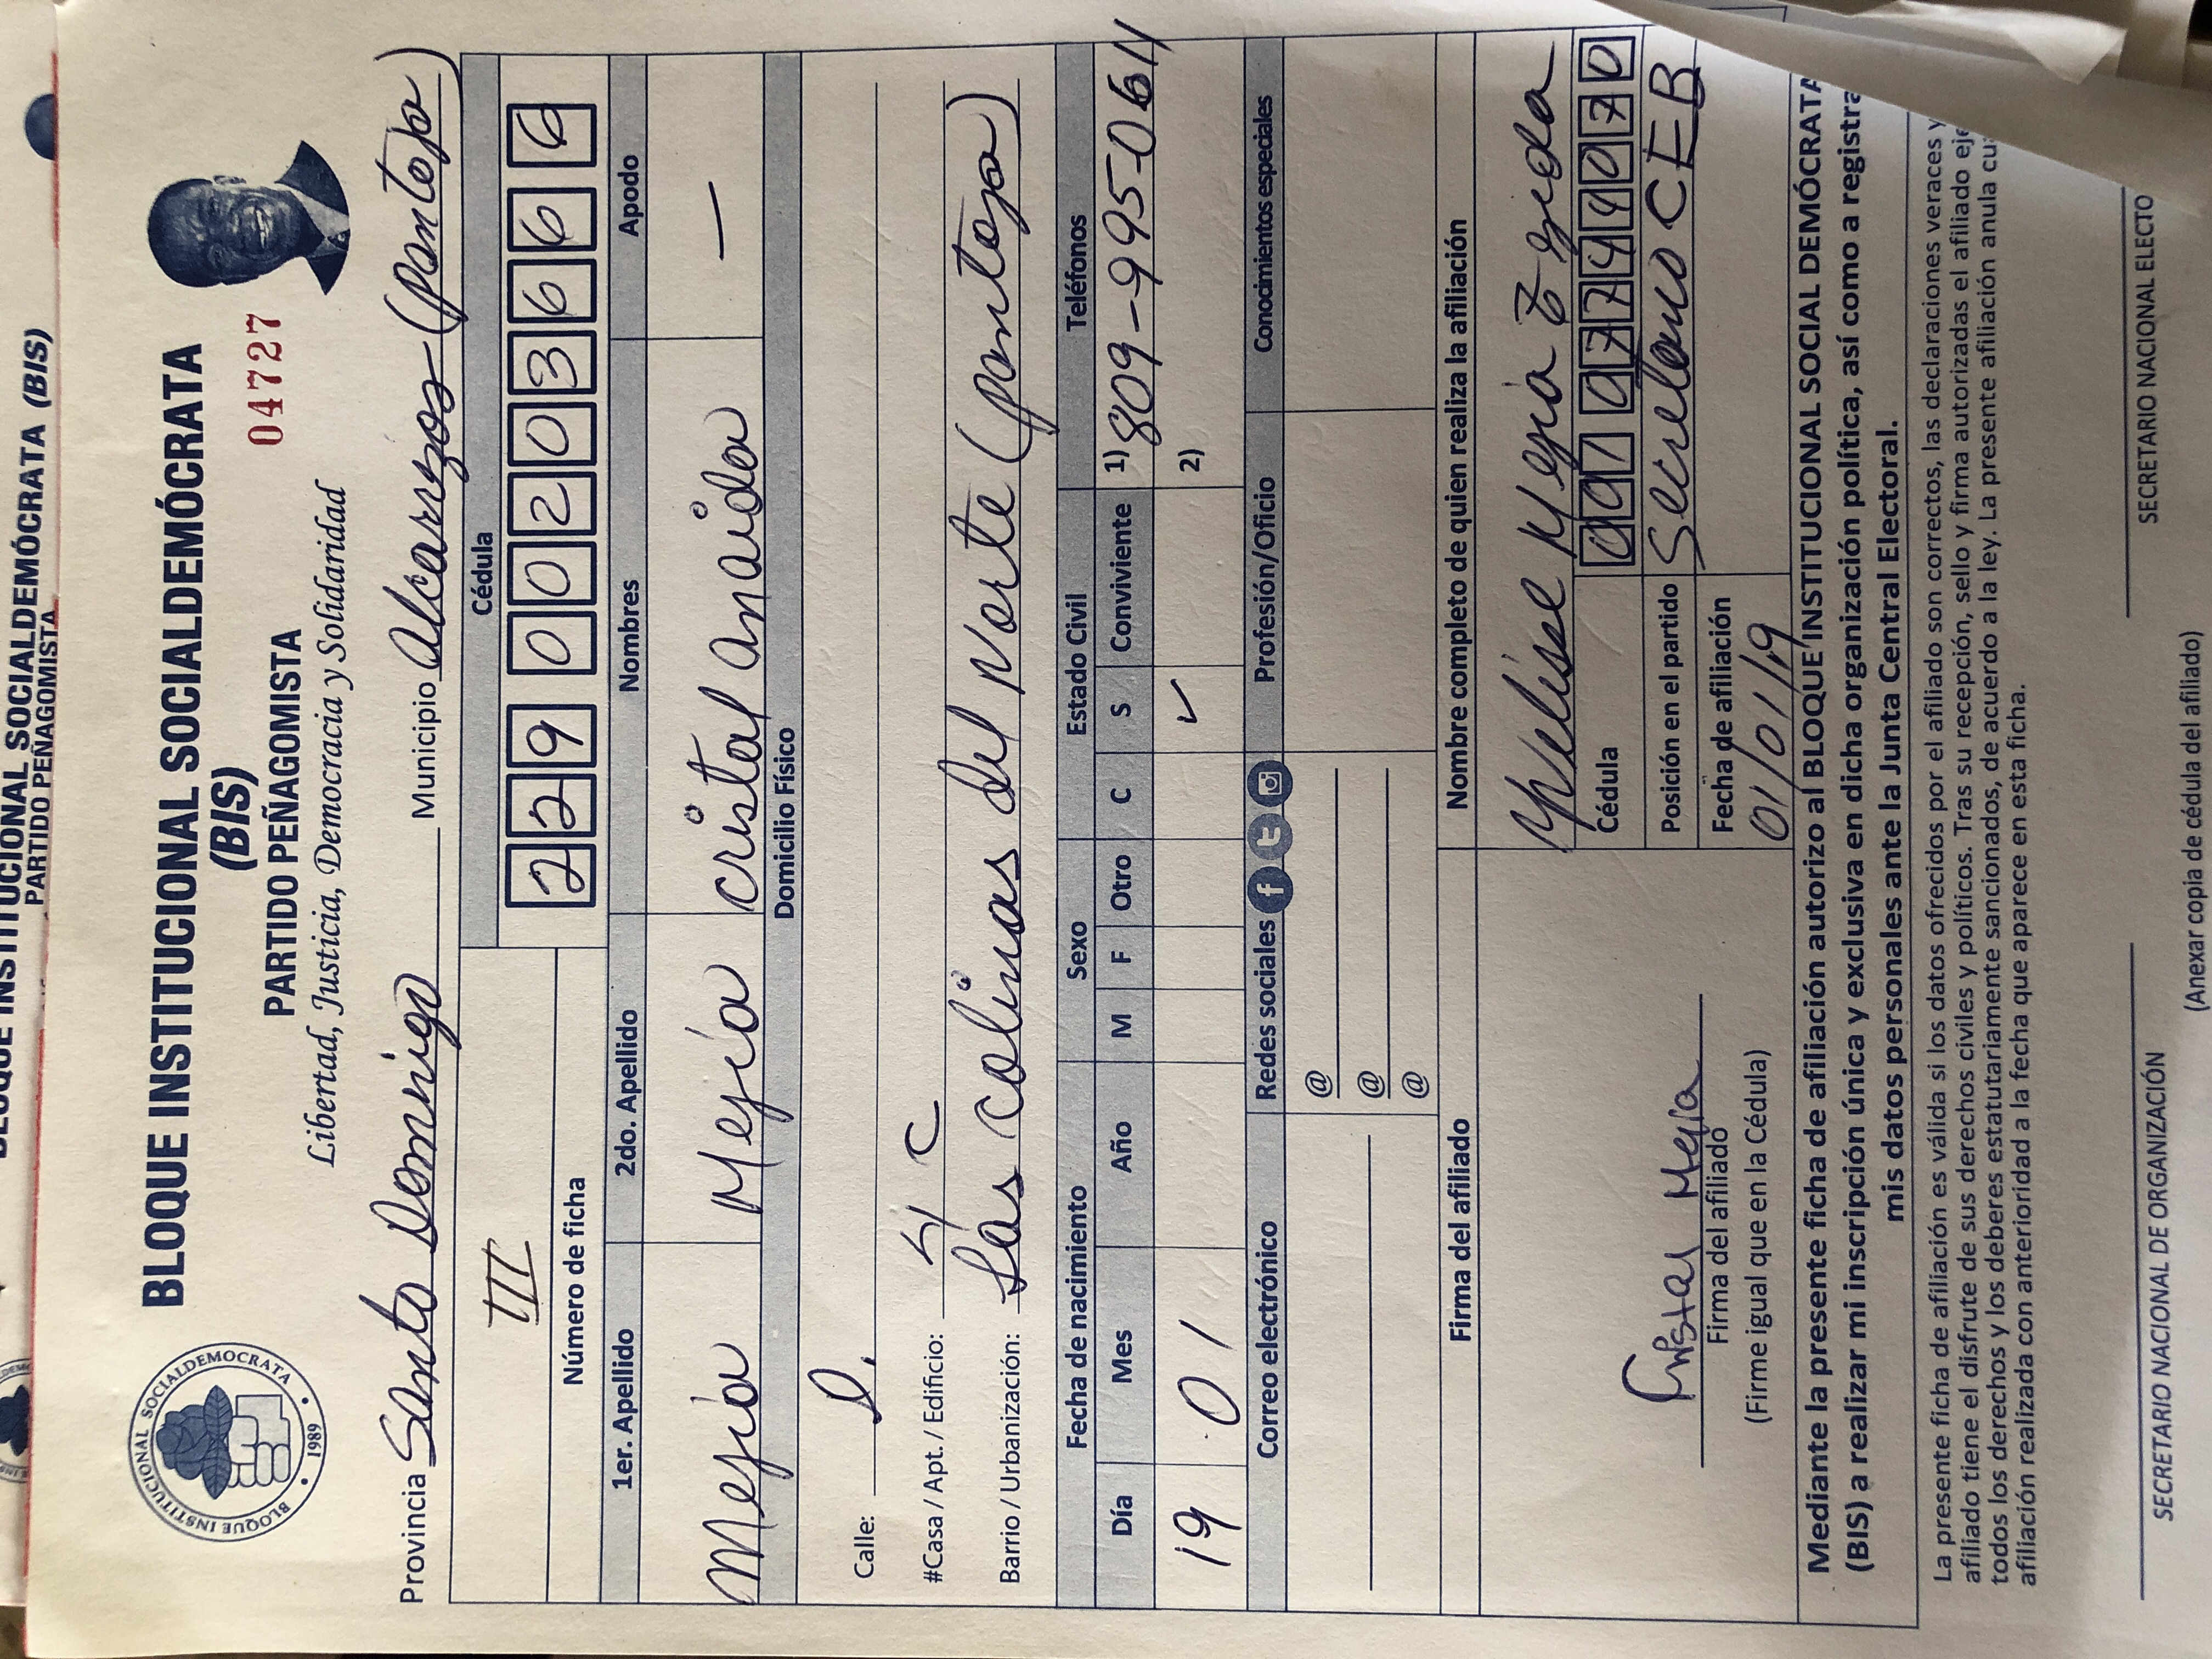 BLOQUE INSTITUCIONAL SOCIALDEMÓCRATA (BIS)
PARTIDO PEÑAGOMISTA
BLOQUE INSTITUCIONAL SOCIALDEMOCRATA
1989
BLOQUE INSTITUCIONAL SOCIALDEMÓCRATA
(BIS)
04727
PARTIDO PEÑAGOMISTA
Libertad, Justicia, Democracia y Solidaridad
Provincia Santo Domingo Municipio Alcarrizos (pantoja)
III
Número de ficha
Cédula
2 2 9 0 0 2 0 3 6 6
1er. Apellido 2do. Apellido Nombres Apodo
Mejía Mejía cristal anaida —
Domicilio Físico
Calle: D.
#Casa / Apt. / Edificio: C
Barrio / Urbanización: Las Colinas del Norte (pantoja)
Fecha de nacimiento Sexo Estado Civil Teléfonos
Día Mes Año M F Otro C S Conviviente 1) 809-995-0611
19 01 ✓ 2)
Correo electrónico Redes sociales Profesión/Oficio Conocimientos especiales
@
@
@
Firma del afiliado Nombre completo de quien realiza la afiliación
Mejia
Cédula
Posición en el partido CEB
Fecha de afiliación
01/01/19
Mejia
Firma del afiliado
(Firme igual que en la Cédula)
Mediante la presente ficha de afiliación autorizo al BLOQUE INSTITUCIONAL SOCIAL DEMÓCRATA
(BIS) a realizar mi inscripción única y exclusiva en dicha organización política, así como a registra
mis datos personales ante la Junta Central Electoral.
La presente ficha de afiliación es válida si los datos ofrecidos por el afiliado son correctos, las declaraciones veraces y
afiliado tiene el disfrute de sus derechos civiles y políticos. Tras su recepción, sello y firma autorizadas el afiliado eje
todos los derechos y los deberes estatutariamente sancionados, de acuerdo a la ley. La presente afiliación anula cu
afiliación realizada con anterioridad a la fecha que aparece en esta ficha.
SECRETARIO NACIONAL DE ORGANIZACIÓN SECRETARIO NACIONAL ELECTO
(Anexar copia de cédula del afiliado)